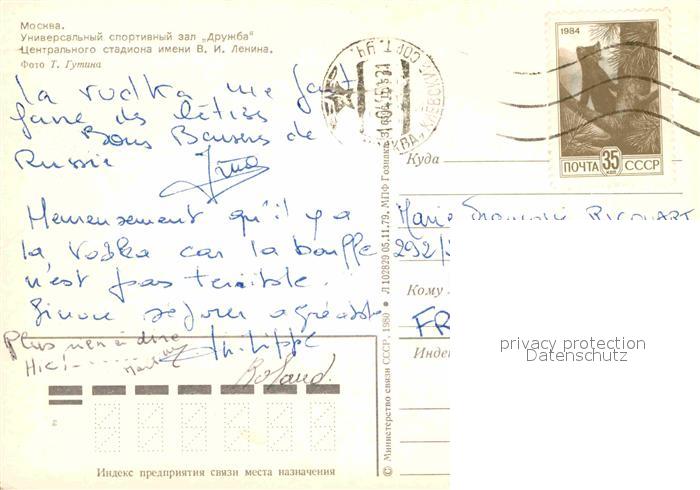 Москва.
Универсальный спортивный зал „Дружба“
Центрального стадиона имени В. И. Ленина.
Фото Т. Гутина
La vodka me fait
faire des bêtises
Bons Baisers de
Russie
Heureusement qu'il y a
la vodka car la bouffe
n'est pas terrible.
Sinon séjour agréable
Philippe
Plus rien à dire
Hic!
Roland.
Индекс предприятия связи места назначения
© Министерство связи СССР. 1980 ● Л 102829 05.11.79. МПФ Гознака.
1984
ПОЧТА 35 КОП СССР
Куда
Marie
292/
Кому
FR
Инде
privacy protection
Datenschutz